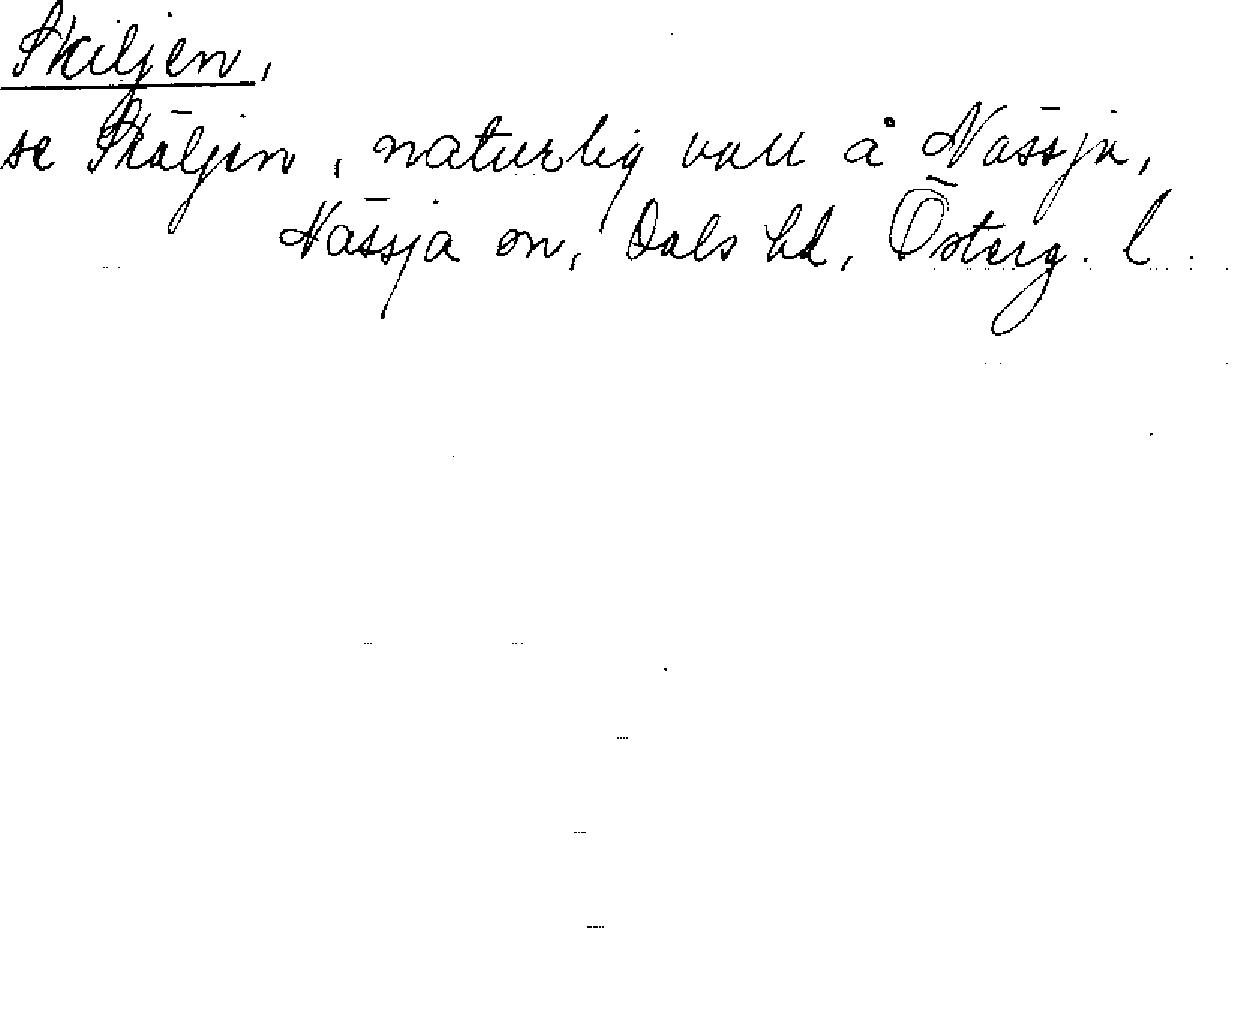 Skiljen,
se Skäljen, naturlig vall å Nässja,
Nässja sn, Dals hd, Österg. l.